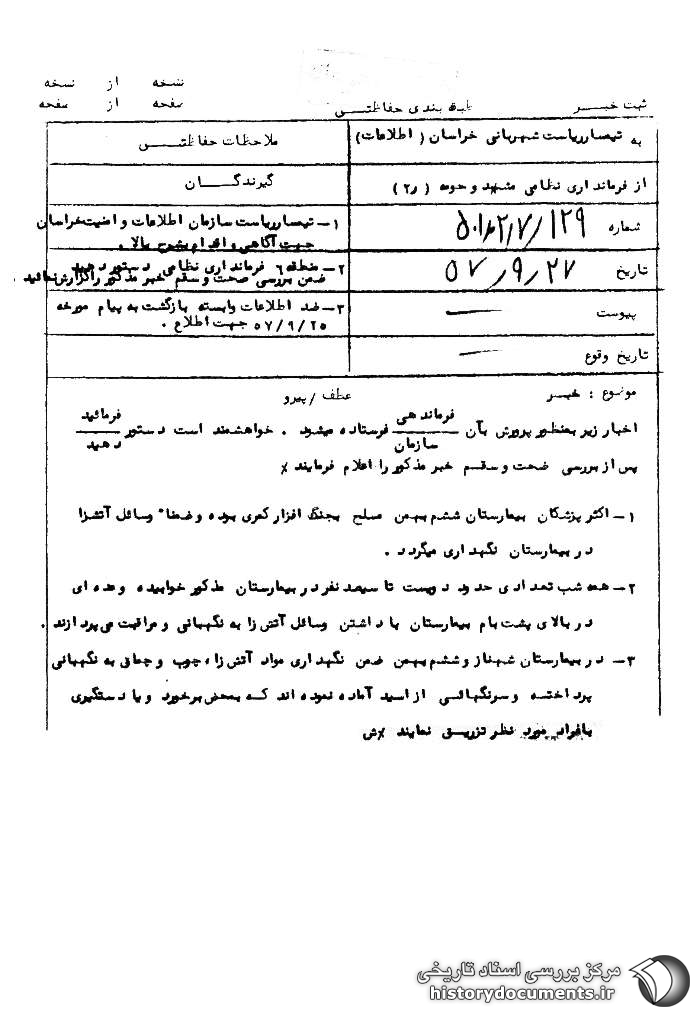 نسخه از نسخه
صفحه از صفحه
ثبت خبر
طبقه بندی حفاظتی
به تیمسار ریاست شهربانی خراسان ( اطلاعات )
ملاحظات حفاظتی
از فرمانداری نظامی مشهد و حومه ( ر۲ )
گیرندگان
شماره
تاریخ ۵۷/۹/۲۷
پیوست —
تاریخ وقوع —
۱- تیمسار ریاست سازمان اطلاعات و امنیت خراسان
جهت آگاهی و اقدام بشرح بالا .
۲- منطقه ۶ فرمانداری نظامی دستور دهید
ضمن بررسی صحت و سقم خبر مذکور را گزارش نمائید .
۳- ضد اطلاعات وابسته بازگشت به پیام مورخه
۵۷/۹/۲۵ جهت اطلاع .
موضوع : خبر
عطف / پیرو
اخبار زیر بمنظور پرورش بآن فرماندهی سازمان فرستاده میشود . خواهشمند است دستور فرمائید دهید
پس از بررسی صحت و سقم خبر مذکور را اعلام فرمایند ٪
۱- اکثر پزشکان بیمارستان ششم بهمن مسلح بجنگ افزار کمری بوده و ضمنا" وسائل آتشزا
در بیمارستان نگهداری میگردد .
۲- همه شب تعدادی حدود دویست تا سیصد نفر در بیمارستان مذکور خوابیده وعده ای
در بالای پشت بام بیمارستان با داشتن وسائل آتش زا به نگهبانی و مراقبت می پردازند .
۳- در بیمارستان شهناز و ششم بهمن ضمن نگهداری مواد آتش زا ، چوب و چماق به نگهبانی
پرداخته و سرنگهائی از اسید آماده نموده اند که بمحض برخورد و یا دستگیری
بافراد مورد نظر تزریق نمایند ٪ش
مرکز بررسی اسناد تاریخی
historydocuments.ir